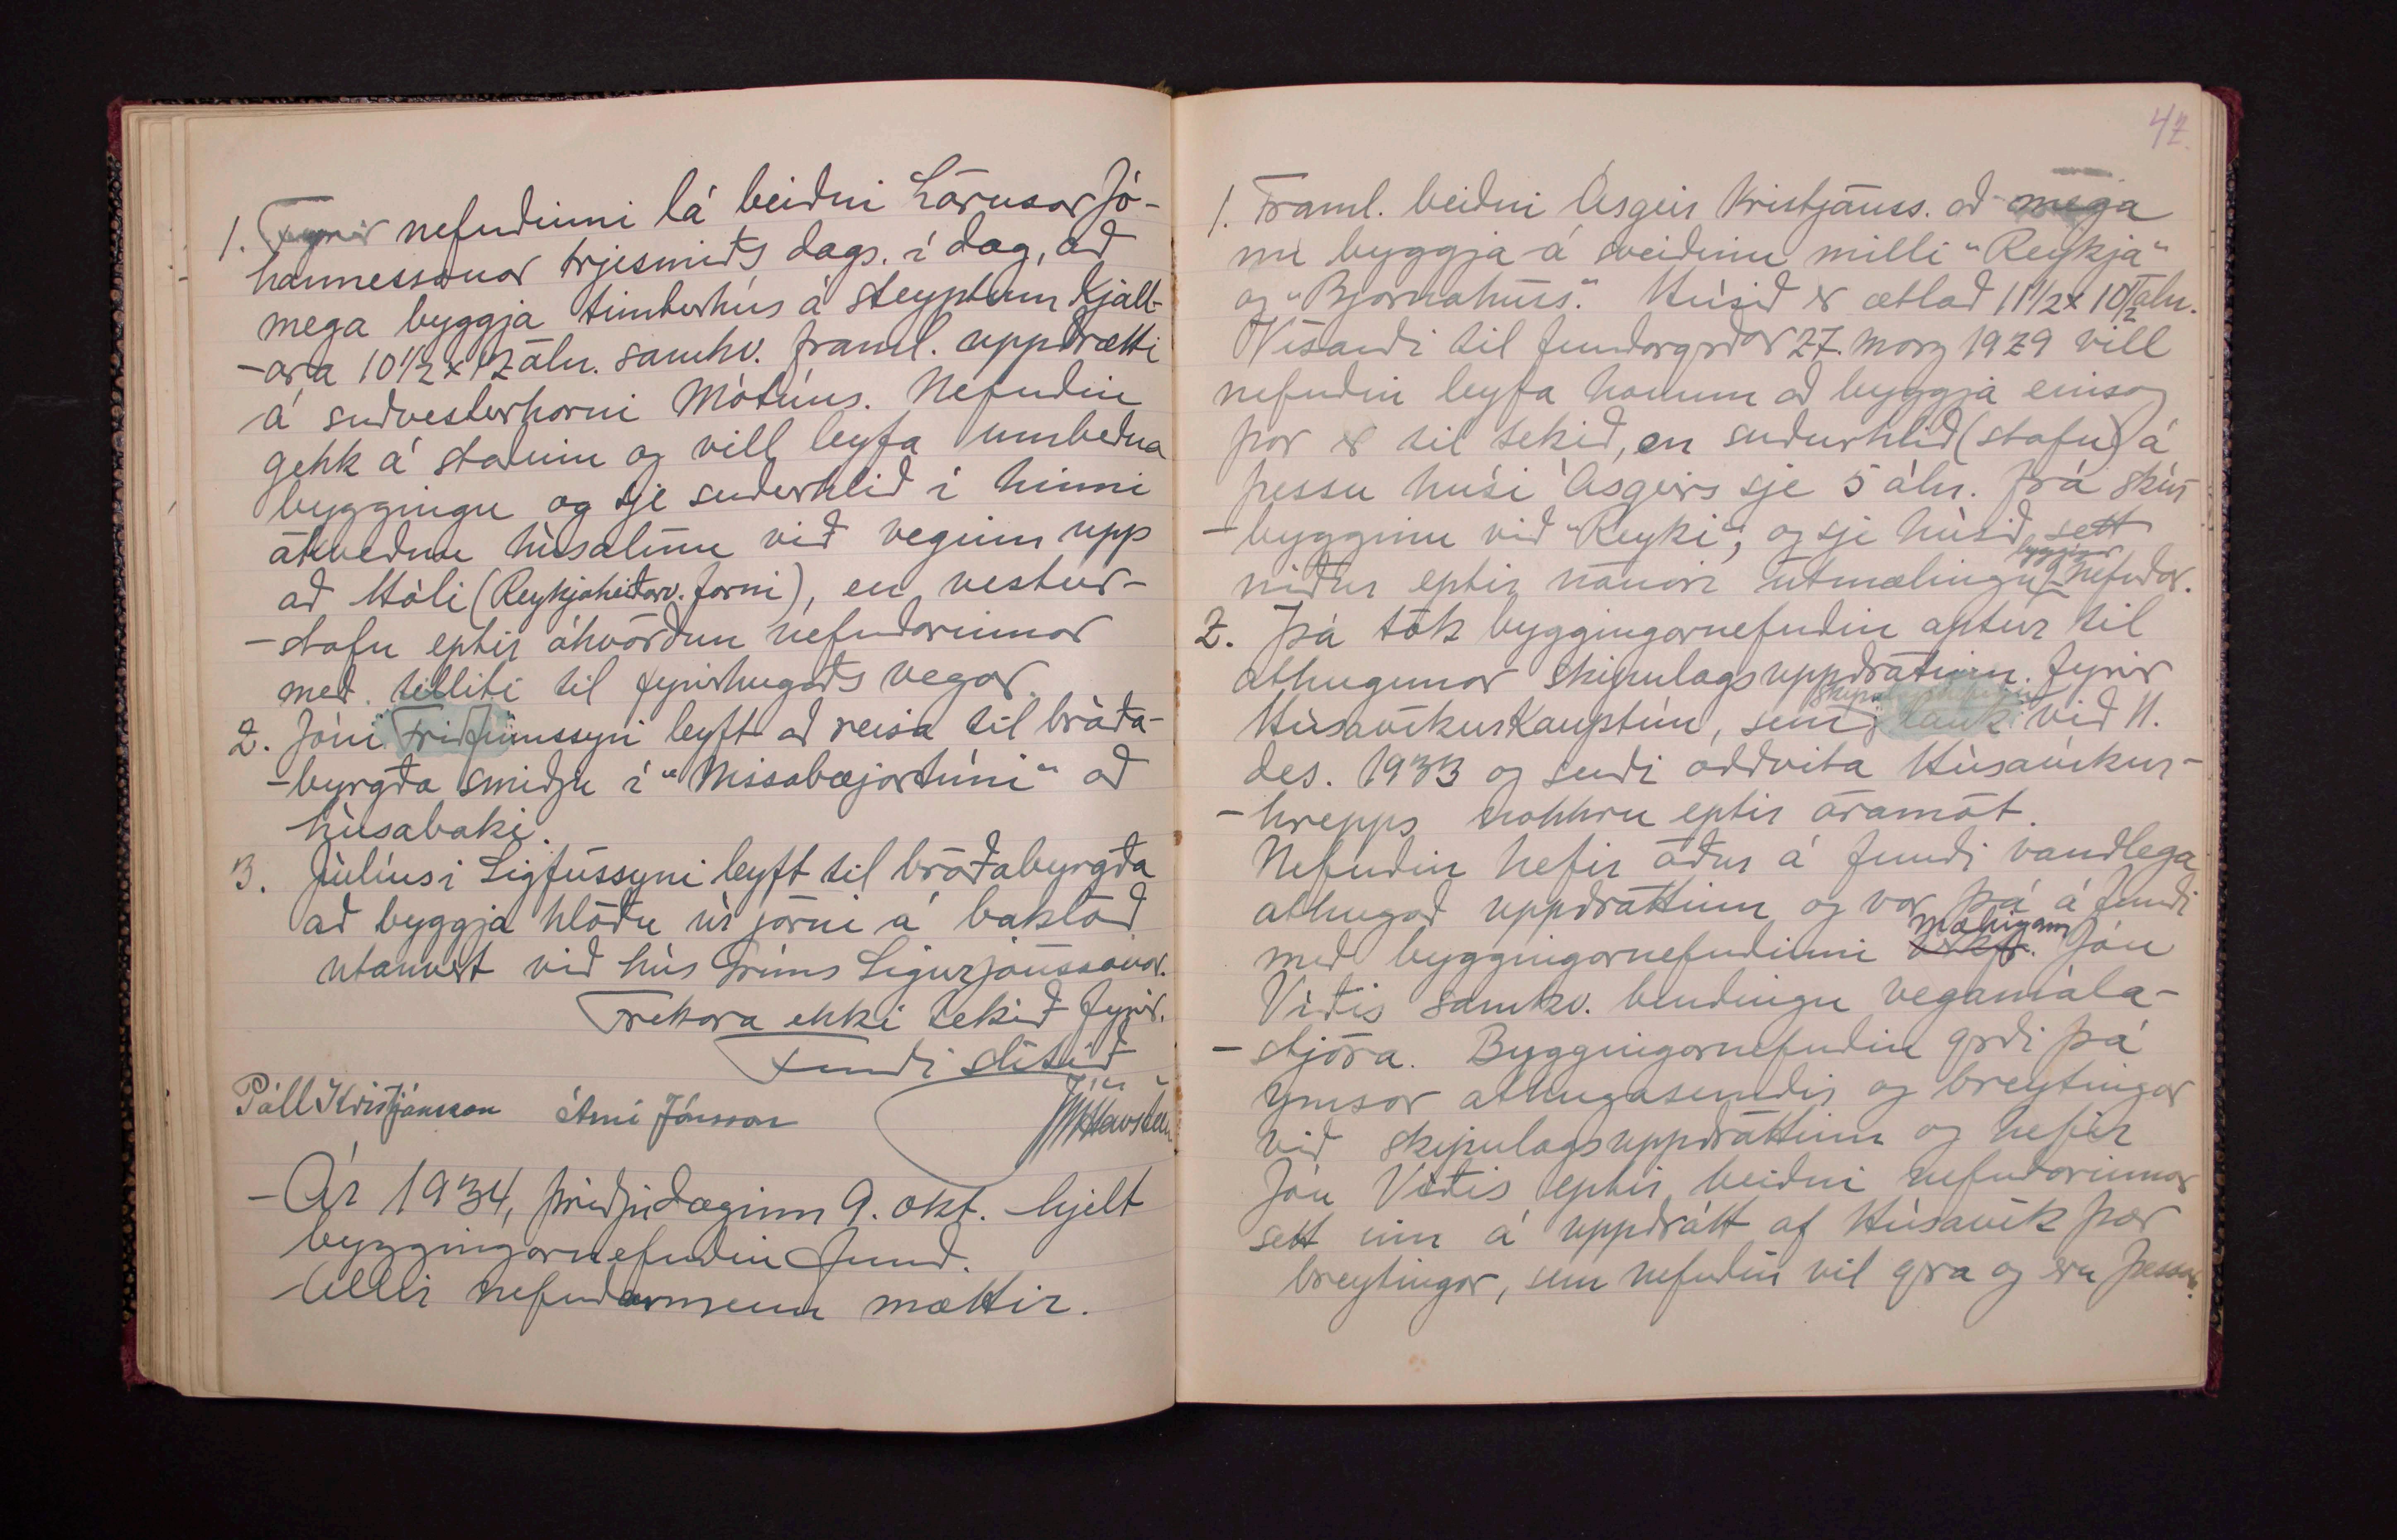 1. Fyrir nefndinni lá beiðni Lárusar Jó-
hannessonar trjesmiðs dags. í dag, að
mega byggja timburhús á steyptum Kjall-
-ara 10 1/2 x 12 áln. samkv. framl. uppdrætti
á suðvesturhorni Mótúns. Nefndin
gekk á staðinn og vill leyfa umbeðna
byggingu og sje suðurhlið í hinni
ákveðnu húsalínu við veginn upp
að Hóli (Reykjaheiðarv. forni), en vestur-
-stafn eptir ákvörðun nefndarinnar
með tilliti til fyrirhugaðs vegar.
2. Jóni Friðfinnssyni leyft að reisa til bráða-
-byrgða smiðju í "Nissabæjartúni" að
húsabaki.
3. Júlíusi Sigfússyni leyft til bráðabyrgða
að byggja hlöðu úr járni á baklóð
utanvert við hús Gríms Sigurjónssonar.
Frekara ekki tekið fyrir.
Fundi slitið
Páll Kristjánsson Árni Jónsson JúlHavsteen
- Ár 1934, þriðjudaginn 9. okt. hjelt
byggingarnefndin fund.
Allir nefndarmenn mættir.
47.
1. Framl. beiðni Ásgeirs Kristjánss. að mega
nú byggja á svæðinu milli "Reykja"
og "Bjarnahúss". Húsið er ætlað 11 1/2 x 10 1/2 áln.
Vísandi til fundargrðar 27. marz 1929 vill
nefndin leyfa honum að byggja einsog
þar er til tekið, en suðurhlið (stafn) á
þessu húsi Ásgeirs sje 5 áln. frá skúr
-bygginu við "Reyki", og sje húsið sett
niður eptir nánari útmælingu byggingarnefndar.
2. Þá tók byggingarnefndin aptur til
athugunar skipulagsuppdráttinn fyrir
Húsavíkurkauptún, sem lauk við 11.
des. 1933 og sendi oddvita Húsavíkur-
-hrepps nokkru eptir áramót.
Nefndin hefir áður á fundi vandlega
athugað uppdráttinn og var þá á fundi
með byggingarnefndinni mælingam Jón
Víðis samkv. bendingu vegamála-
-stjóra. Byggingarnefndin grði þá
ýmsar athugasemdir og breytingar
við skipulagsuppdráttinn og hefir
Jón Víðis eptir beiðni nefndarinnar
sett inn á uppdrátt af Húsavík þær
breytingar, sem nefndin vil gra og eru þessar: